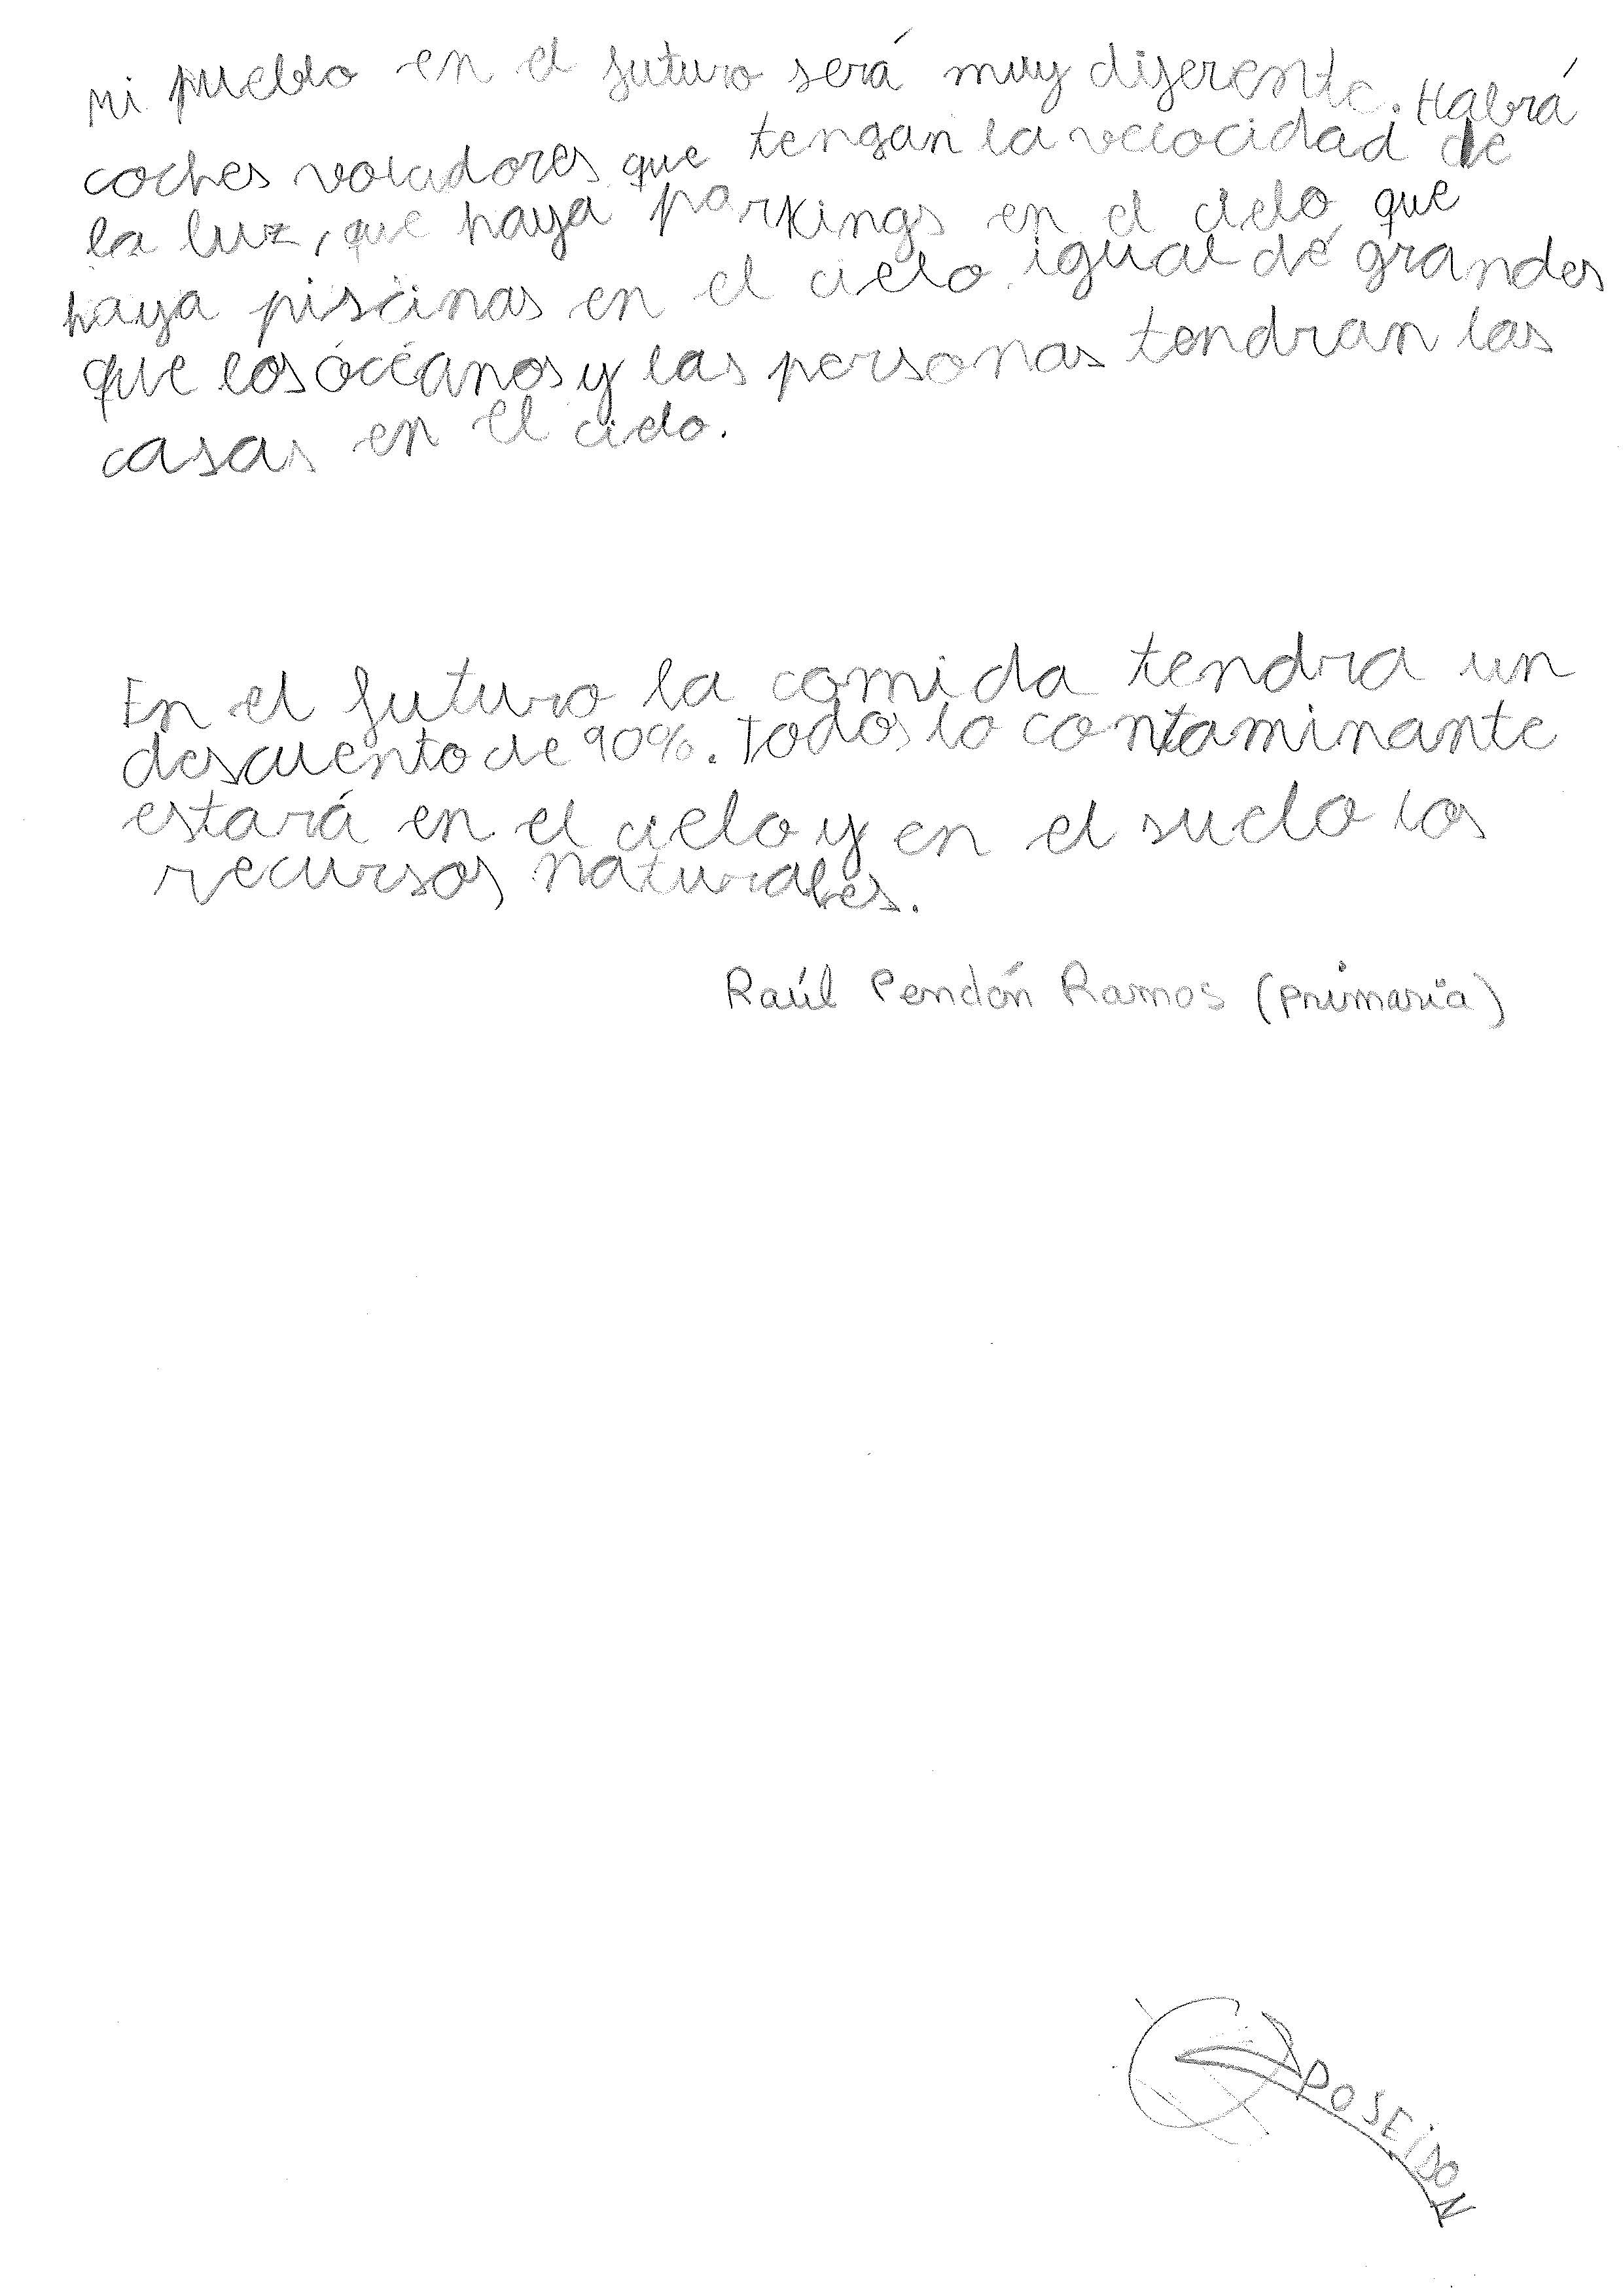 Mi pueblo en el futuro será muy diferente. Habrá
coches voladores que tengan la velocidad de
la luz, que haya parkings en el cielo que
haya piscinas en el cielo igual de grandes
que los océanos y las personas tendran las
casas en el cielo.
En el futuro la comida tendra un
descuento de 90%. Todos lo contaminante
estará en el cielo y en el suelo los
recursos naturales.
Raúl Pendón Ramos (primaria)
POSEIDON